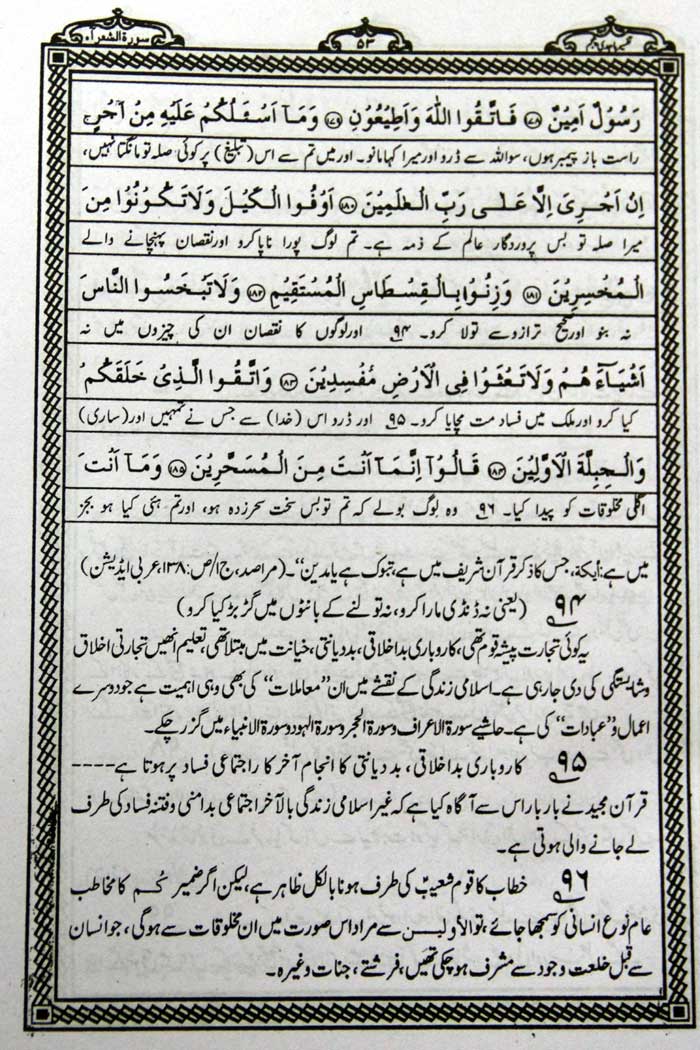 سورۃ الشعرآء
۵۳
رَسُوْلٌ اَمِيْنٌ ۱۷۸ فَاتَّقُوا اللّٰهَ وَاَطِيْعُوْنِ ۱۷۹ وَمَآ اَسْئَلُكُمْ عَلَيْهِ مِنْ اَجْرٍ ج
راست باز پیمبر ہوں، سو اللہ سے ڈرو اور میرا کہا مانو۔ اور میں تم سے اس (تبلیغ) پر کوئی صلہ تو مانگتا نہیں،
اِنْ اَجْرِىَ اِلَّا عَلٰى رَبِّ الْعٰلَمِيْنَ ۱۸۰ اَوْفُوا الْكَيْلَ وَلَا تَكُوْنُوْا مِنَ
میرا صلہ تو بس پروردگار عالم کے ذمہ ہے۔ تم لوگ پورا ناپا کرو اور نقصان پہنچانے والے
الْمُخْسِرِيْنَ ۱۸۱ وَزِنُوْا بِالْقِسْطَاسِ الْمُسْتَقِيْمِ ۱۸۲ وَلَا تَبْخَسُوا النَّاسَ
نہ بنو اور صحیح ترازو سے تولا کرو۔ ۹۴ اور لوگوں کا نقصان ان کی چیزوں میں نہ
اَشْيَآءَ هُمْ وَلَا تَعْثَوْا فِى الْاَرْضِ مُفْسِدِيْنَ ۱۸۳ وَاتَّقُوا الَّذِىْ خَلَقَكُمْ
کیا کرو اور ملک میں فساد مت مچایا کرو۔ ۹۵ اور ڈرو اس (خدا) سے جس نے تمہیں اور (ساری)
وَالْجِبِلَّةَ الْاَوَّلِيْنَ ۱۸۴ قَالُوْٓا اِنَّمَآ اَنْتَ مِنَ الْمُسَحَّرِيْنَ ۱۸۵ وَمَآ اَنْتَ
اگلی مخلوقات کو پیدا کیا۔ ۹۶ وہ لوگ بولے کہ تم تو بس سخت سحرزدہ ہو، اور تم ہئی کیا ہو بجز
میں ہے: أیکۃ، جس کا ذکر قرآن شریف میں ہے، تبوک ہے یا مدین‘‘۔ (مراصد، ج۱/ص: ۱۳۸، عربی ایڈیشن)
۹۴ (یعنی نہ ڈنڈی مارا کرو، نہ تولنے کے باٹوں میں گڑبڑ کیا کرو)
یہ کوئی تجارت پیشہ قوم تھی، کاروباری بداخلاقی، بددیانتی، خیانت میں مبتلا تھی، تعلیم انھیں تجارتی اخلاق
وشایستگی کی دی جارہی ہے۔ اسلامی زندگی کے نقشے میں ان ’’معاملات‘‘ کی بھی وہی اہمیت ہے جو دوسرے
اعمال و ’’عبادات‘‘ کی ہے۔ حاشیے سورۃ الاعراف و سورۃ الحجر و سورۃ الہود و سورۃ الانبیاء میں گزر چکے۔
۹۵ کاروباری بداخلاقی، بددیانتی کا انجام آخر کار اجتماعی فساد پر ہوتا ہے-----
قرآن مجید نے بار بار اس سے آگاہ کیا ہے کہ غیر اسلامی زندگی بالآخر اجتماعی بدامنی وفتنہ فساد کی طرف
لے جانے والی ہوتی ہے۔
۹۶ خطاب کا قوم شعیبؑ کی طرف ہونا بالکل ظاہر ہے، لیکن اگر ضمیر كُم کا مخاطب
عام نوع انسانی کو سمجھا جائے، تو الاولین سے مراد اس صورت میں ان مخلوقات سے ہوگی، جو انسان
سے قبل خلعت وجود سے مشرف ہوچکی تھیں، فرشتے، جنات وغیرہ۔